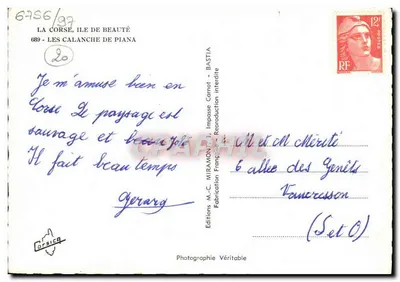 6756/97
LA CORSE, ILE DE BEAUTÉ
689 - LES CALANCHE DE PIANA
20
Je m'amuse bien en
Corse Le paysage est
sauvage et beau
Il fait beau temps
Gérard
corsica
Editions M.-C. MIRAMON, Impasse Carnot - BASTIA
Fabrication Française - Reproduction interdite
12F
RF
M et M Mérité
6 allée des Genêts
Vaucresson
(S et O)
Photographie Véritable